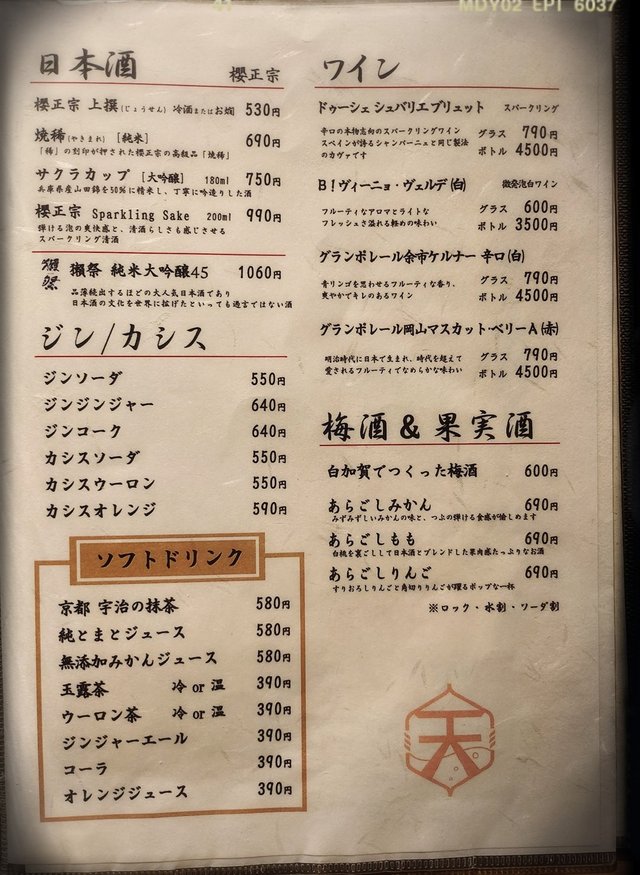 MDY02 EPI 6037
日本酒 櫻正宗
櫻正宗 上撰(じょうせん) 冷酒またはお燗 530円
焼稀(やきまれ) [純米] 690円
「稀」の刻印が押された櫻正宗の高級品「焼稀」
サクラカップ [大吟醸] 180ml 750円
兵庫県産山田錦を50%に精米し、丁寧に吟造りした酒
櫻正宗 Sparkling Sake 200ml 990円
弾ける泡の爽快感と、清酒らしさも感じさせる
スパークリング清酒
獺祭 獺祭 純米大吟醸45 1060円
品薄続出するほどの大人気日本酒であり
日本酒の文化を世界に拡げたといっても過言ではない酒
ジン/カシス
ジンソーダ 550円
ジンジンジャー 640円
ジンコーク 640円
カシスソーダ 550円
カシスウーロン 550円
カシスオレンジ 590円
ソフトドリンク
京都 宇治の抹茶 580円
純とまとジュース 580円
無添加みかんジュース 580円
玉露茶 冷 or 温 390円
ウーロン茶 冷 or 温 390円
ジンジャーエール 390円
コーラ 390円
オレンジジュース 390円
ワイン
ドゥーシェ シュバリエ ブリュット スパークリング
辛口の本物志向のスパークリングワイン
スペインが誇るシャンパーニュと同じ製法
のカヴァです
グラス 790円
ボトル 4500円
B!ヴィーニョ・ヴェルデ(白) 微発泡白ワイン
フルーティなアロマとライトな
フレッシュさ溢れる軽めの味わい
グラス 600円
ボトル 3500円
グランポレール余市ケルナー 辛口(白)
青リンゴを思わせるフルーティな香り、
爽やかでキレのあるワイン
グラス 790円
ボトル 4500円
グランポレール岡山マスカット・ベリーA(赤)
明治時代に日本で生まれ、時代を超えて
愛されるフルーティでなめらかな味わい
グラス 790円
ボトル 4500円
梅酒&果実酒
白加賀でつくった梅酒 600円
あらごしみかん 690円
みずみずしいみかんの味と、つぶの弾ける食感が愉しめます
あらごしもも 690円
白桃を裏ごしして日本酒とブレンドした果肉感たっぷりなお酒
あらごしりんご 690円
すりおろしりんごと角切りりんごが躍るポップな一杯
※ロック・水割・ソーダ割
天